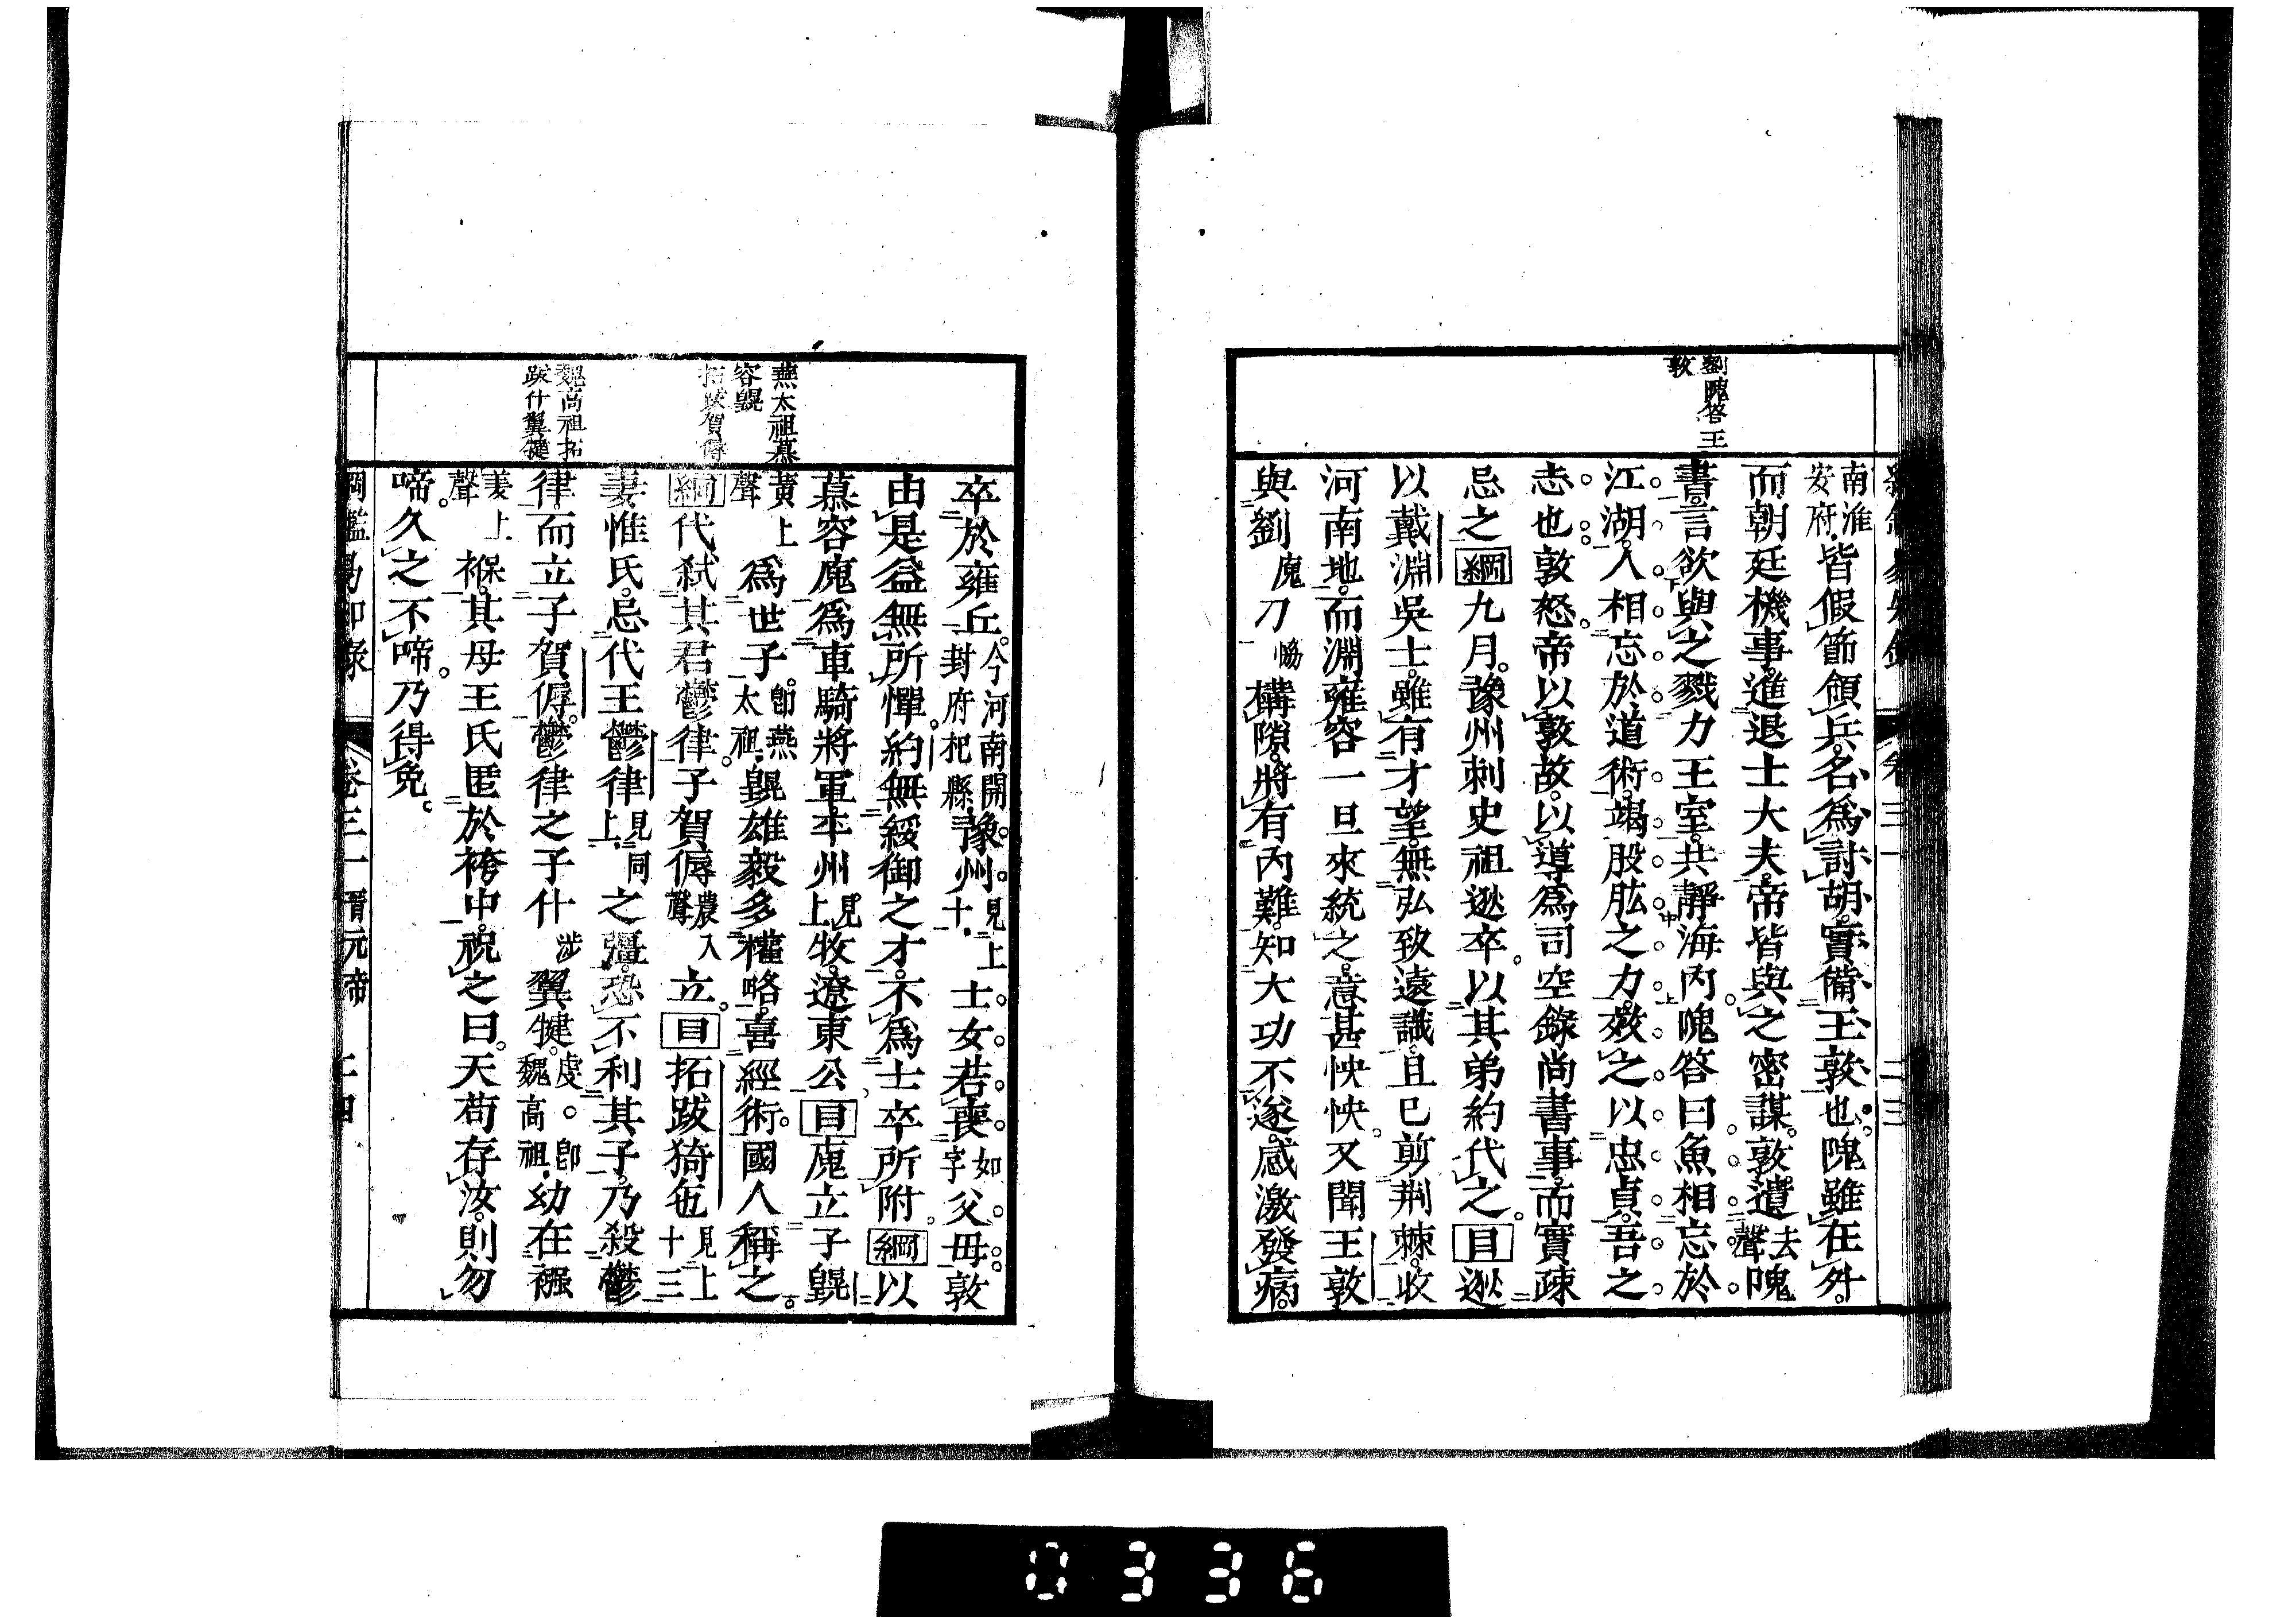 劉隗答王
敦
南淮
安府皆假節領兵名爲討胡實備王敦也隗雖在外
而朝廷機事進退士大夫帝皆與之密謀敦遺去聲隗
書言欲與之戮力王室共靜海內隗答曰魚相忘於
江湖人相忘於道術竭股肱之力效之以忠貞吾之
志也敦怒帝以敦故以導爲司空錄尚書事而實疎
忌之綱九月豫州刺史祖逖卒以其弟約代之目逖
以戴淵吳士雖有才望無弘致遠識且已剪荆棘收
河南地而淵雍容一旦來統之意甚怏怏又聞王敦
與劉隗刀協構隙將有內難知大功不遂感激發病
卒於雍丘今河南開封府杞縣豫州見上十一士女若喪如字父母敦
由是益無所憚約無綏御之才不爲士卒所附綱以
慕容廆爲車騎將軍平州見上牧遼東公目廆立子皝
黃上聲爲世子卽燕太祖皝雄毅多權略喜經術國人稱之
綱代弑其君鬱律子賀傉農入聲立目拓跋猗㐌見上十三
妻惟氏忌代王鬱律見同上之彊恐不利其子乃殺鬱
律而立子賀傉鬱律之子什涉翼犍虔卽魏高祖幼在襁
姜上聲褓其母王氏匿於袴中祝之曰天苟存汝則勿
啼久之不啼乃得免
燕太祖慕
容皝
拓跋賀傉
魏高祖拓
跋什翼犍
綱鑑易知錄 卷三一 晉元帝 二四